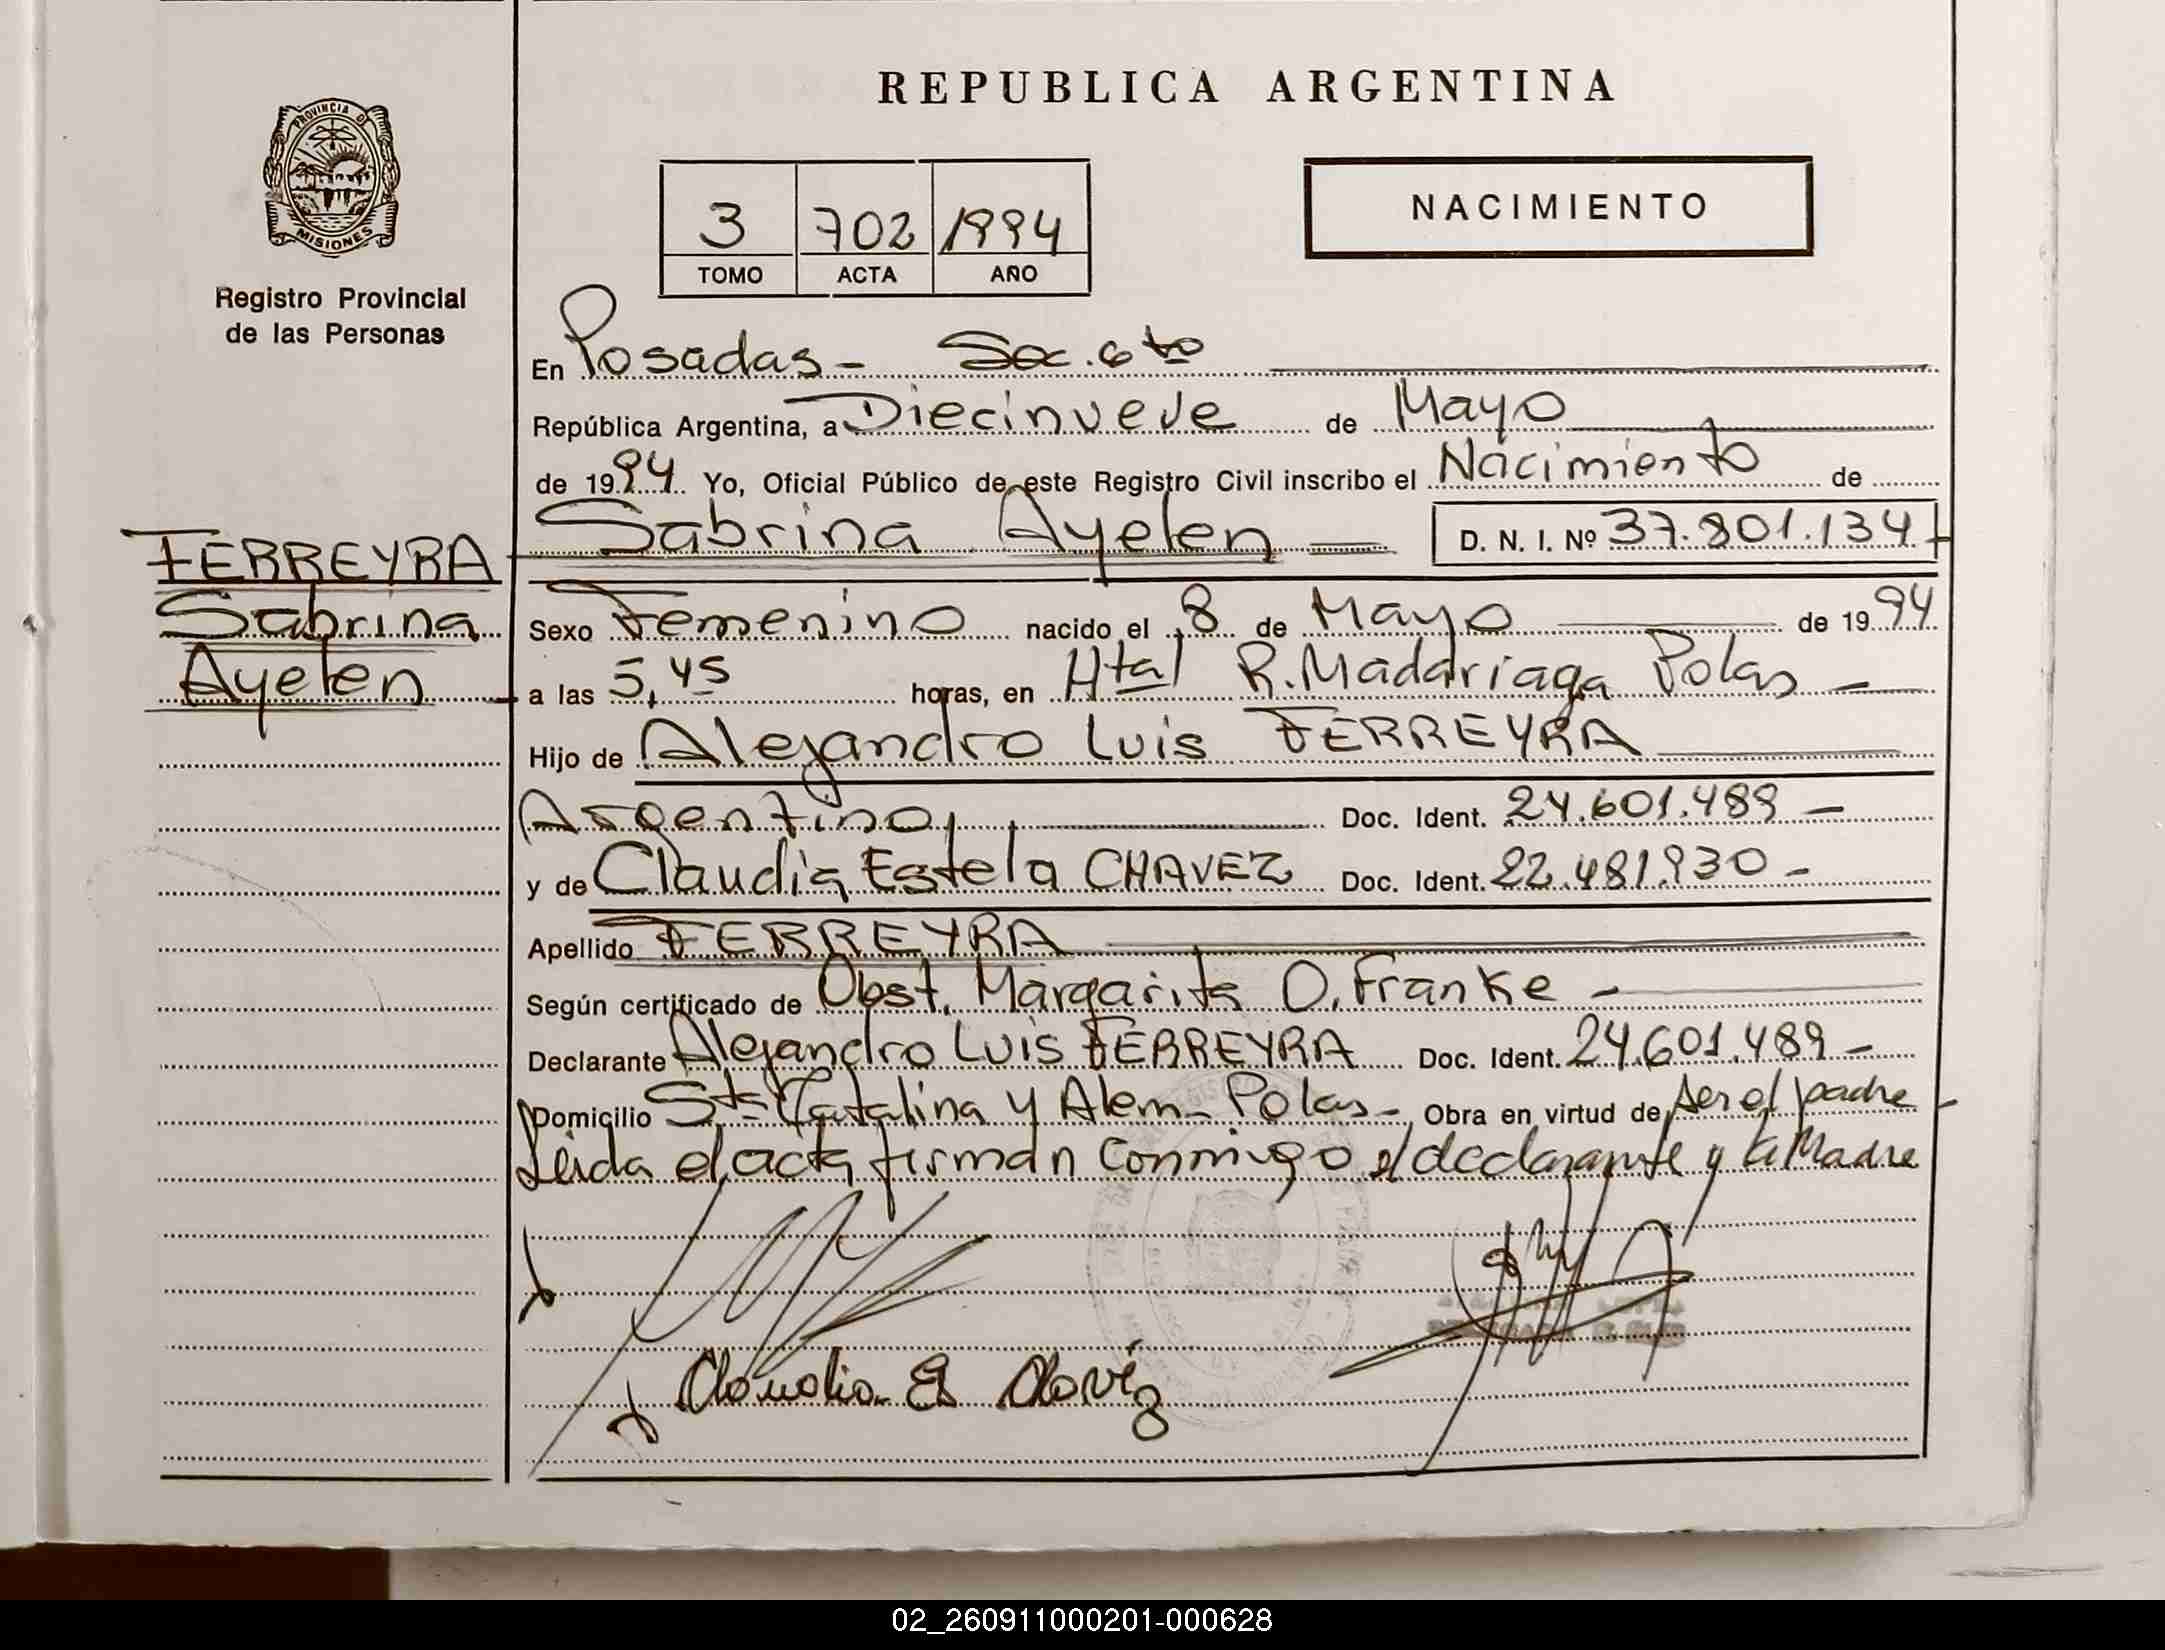 REPUBLICA ARGENTINA
PROVINCIA DE
MISIONES
Registro Provincial
de las Personas
3 702 1994
TOMO ACTA AÑO
NACIMIENTO
En Posadas - Sec. 6to
República Argentina, a Diecinueve de Mayo
de 1994. Yo, Oficial Público de este Registro Civil inscribo el Nacimiento de
Sabrina Ayelen — D. N. I. Nº 37.801.134
FERREYRA
Sabrina
Ayelen
Sexo Femenino nacido el 8 de Mayo de 1994
a las 5,45 horas, en Htal R. Madariaga Pdas —
Hijo de Alejandro Luis FERREYRA
Argentino, Doc. Ident. 24.601.489 —
y de Claudia Estela CHAVEZ Doc. Ident. 22.481.930 -
Apellido FERREYRA
Según certificado de Obst. Margarita O. Franke -
Declarante Alejandro Luis FERREYRA Doc. Ident. 24.601.489 -
Domicilio Sta Catalina y Alem - Pdas - Obra en virtud de ser el padre -
Leida el acta firman conmigo el declarante y la Madre
Claudia E Chavez
02_260911000201-000628